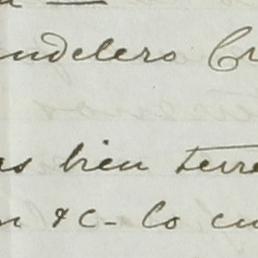 ndelero Cr
as bien terre
n &c- Co cu